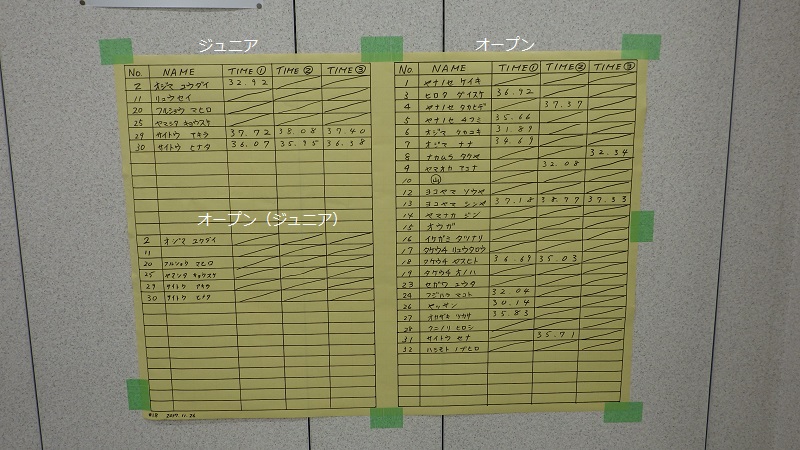 ジュニア
No. NAME TIME① TIME② TIME③
2 オジマ コウダイ 32.92
11 リュウセイ
20 フルショウ マヒロ
25 ヤマシタ キョウスケ
29 サイトウ アキラ 37.72 38.08 37.40
30 サイトウ ヒナタ 36.07 35.95 36.38
オープン（ジュニア）
2 オジマ コウダイ
11
20 フルショウ マヒロ
25 ヤマシタ キョウスケ
29 サイトウ アキラ
30 サイトウ ヒナタ
#18 2017.11.26
オープン
No. NAME TIME① TIME② TIME③
1 ヤナノセ ケイキ
3 ヒロタ ダイスケ 36.92
4 ヤナノセ タカヒデ 37.37
5 ヤナノセ 35.66
6 オジマ タカユキ 31.89
7 オジマ ナナ 34.69
8 ナカムラ タクヤ 32.34
9 ヤマオカ 32.08
10 山
12 ヨコヤマ ソウヤ
13 ヨコヤマ シンヤ 37.18 38.77 37.33
14 ヤマナカ ジン
15 オウガ
16 イケガミ カツナリ
17 タケウチ リュウタロウ
18 タケウチ ヤスヒト 36.69 35.03
19 タケウチ オノハ
23 セガワ ユウタ
24 フジハラ マコト 32.04
26 ヤッサン 30.14
27 オカザキ ツカサ 35.83
28 クニノリ ヒロシ
31 サイトウ セナ 35.71
32 ハシモト ノブヒロ